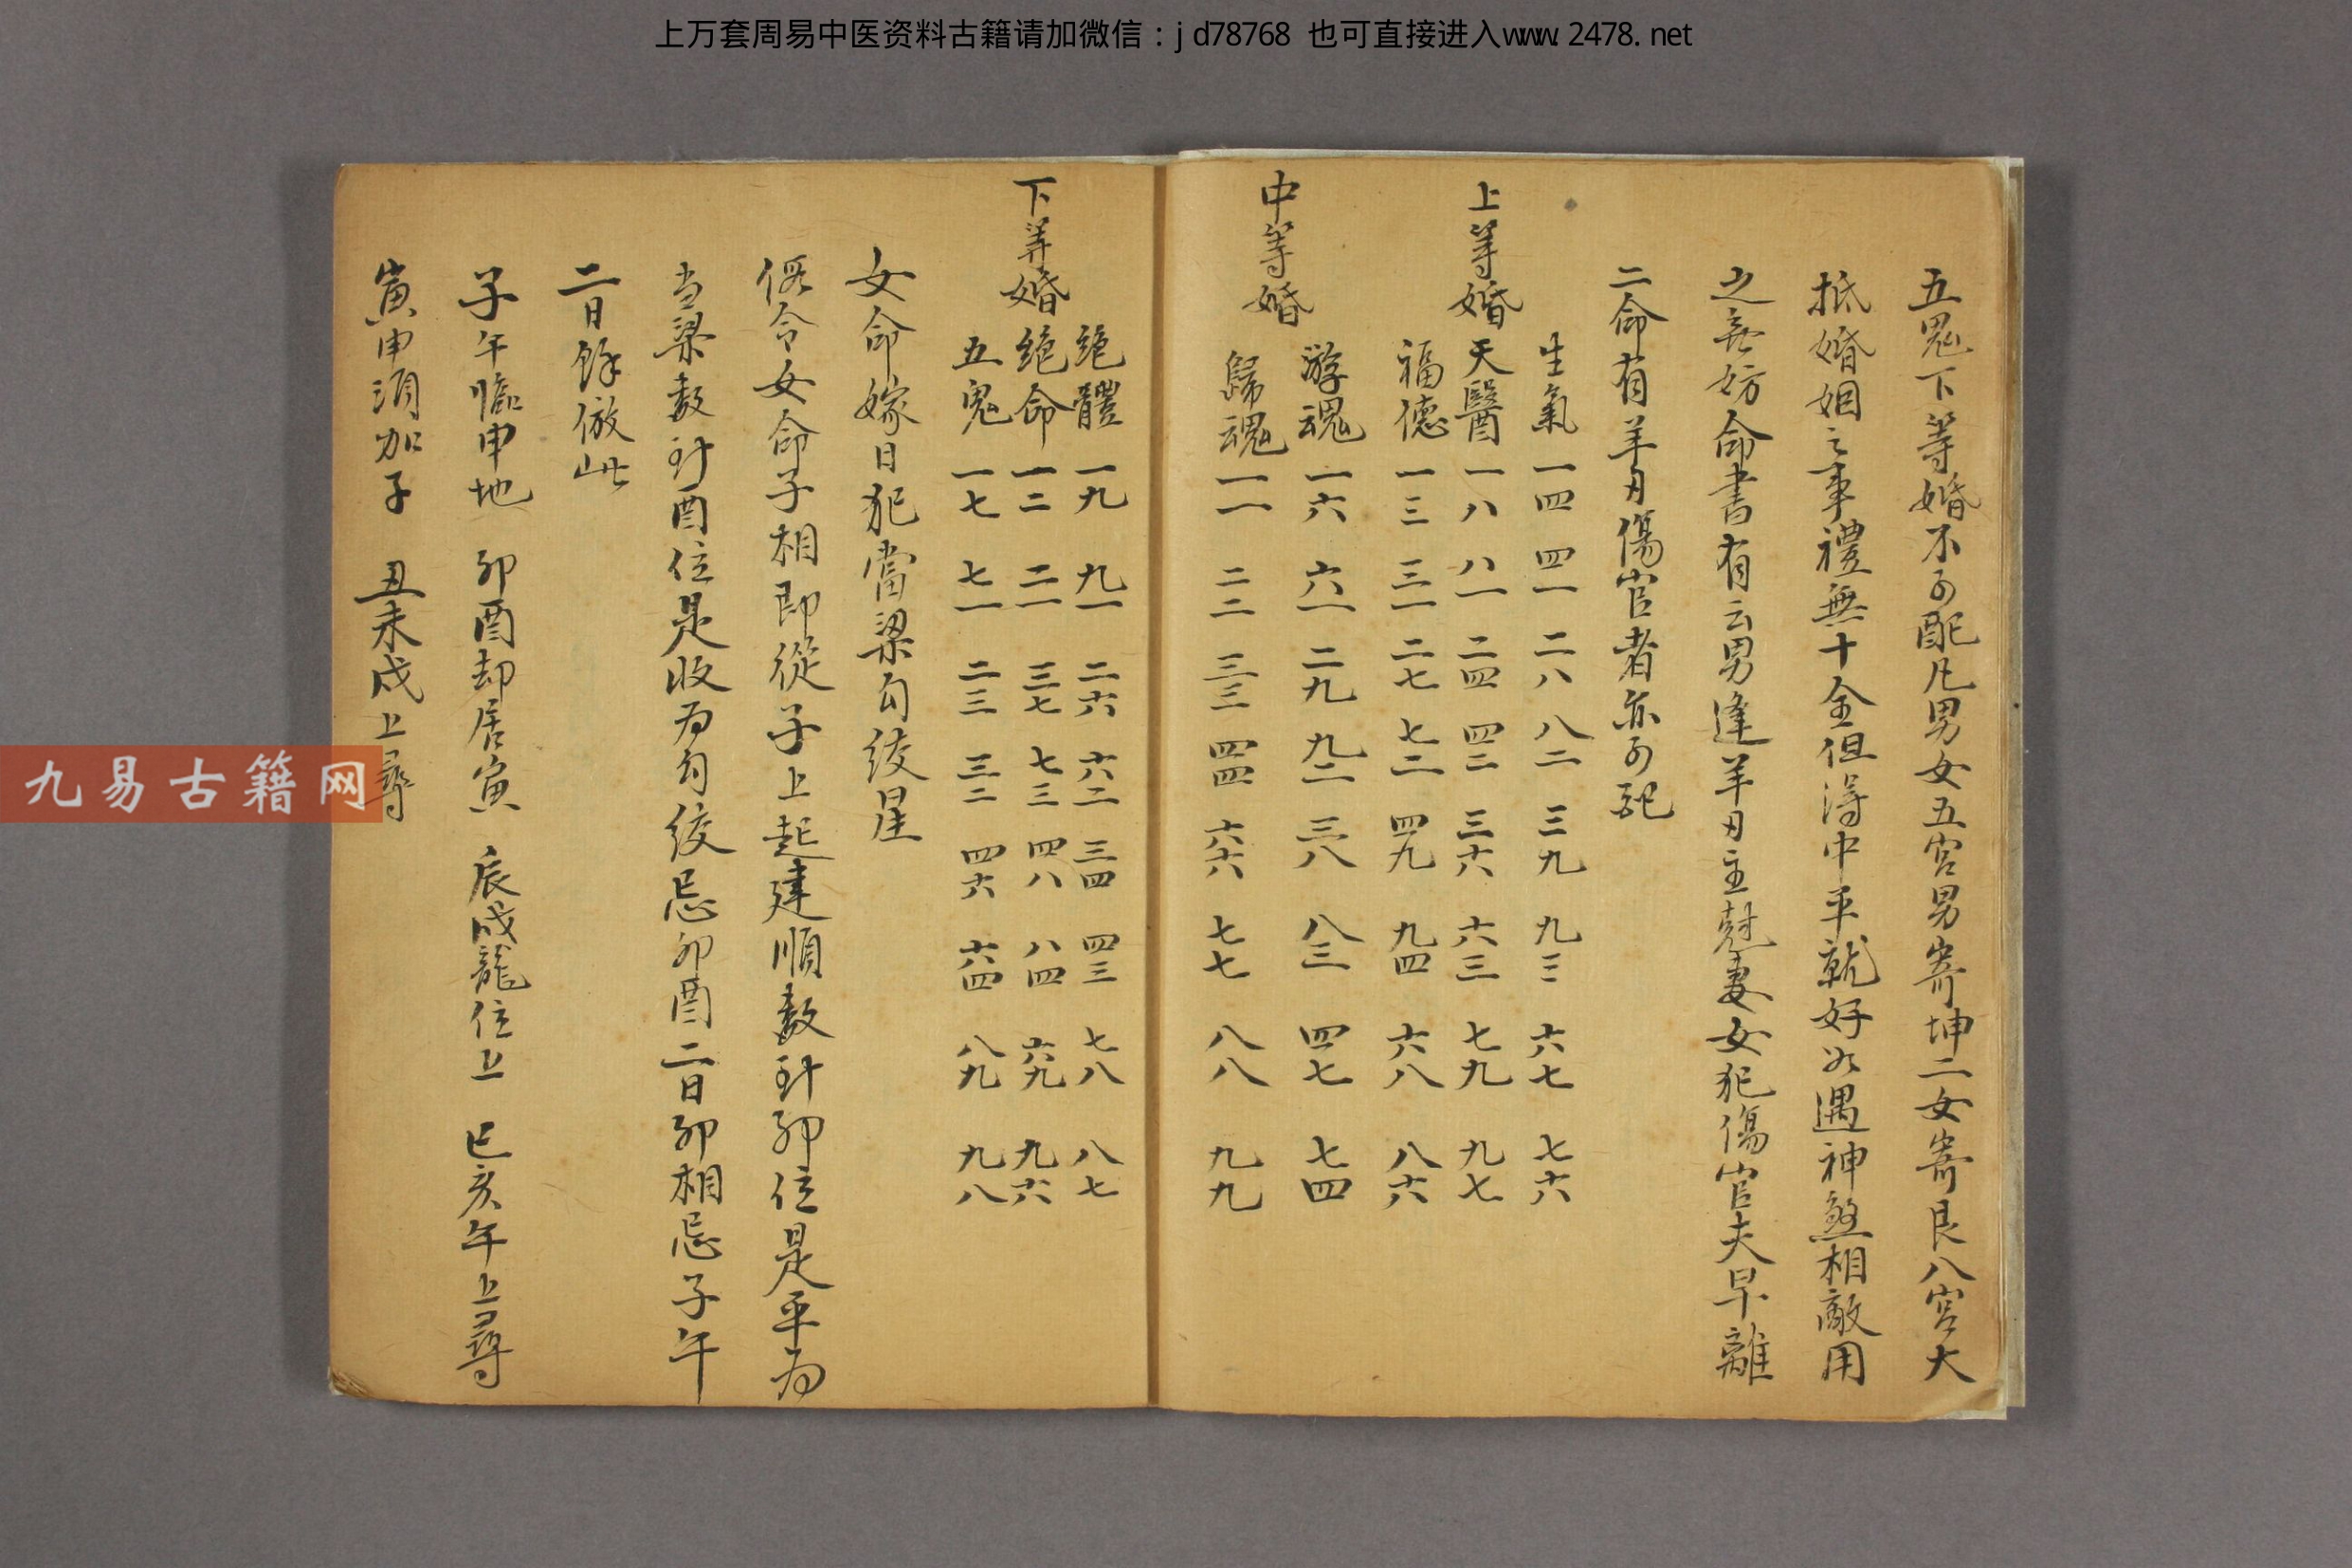 上万套周易中医资料古籍请加微信：jd78768 也可直接进入www.2478.net
五鬼下等婚不可配凡男女五宮男寄坤二女寄艮八宮大
抵婚姻之事禮無十全但得中平就好必遇神煞相敵用
之無妨命書有云男逢羊刃主尅妻女犯傷官夫早離
二命有羊刃傷官者亦可配
上等婚
生氣 一四 四一 二八 八二 三九 九三 六七 七六
天醫 一八 八一 二四 四二 三六 六三 七九 九七
福德 一三 三一 二七 七二 四九 九四 六八 八六
中等婚
游魂 一六 六一 二九 九二 三八 八三 四七 七四
歸魂 一一 二二 三三 四四 六六 七七 八八 九九
下等婚
絶體 一九 九一 二六 六二 三四 四三 七八 八七
絶命 一二 二一 三七 七三 四八 八四 六九 九六
五鬼 一七 七一 二三 三二 四六 六四 八九 九八
女命嫁日犯當梁勾绞星
假令女命子相即從子上起建順数到卯位是平为
当梁数到酉位是收为勾绞忌卯酉二日卯相忌子午
二日餘倣此
子午臨申地 卯酉却居寅 辰戌龍位上 巳亥午上尋
寅申須加子 丑未戌上尋
九易古籍网